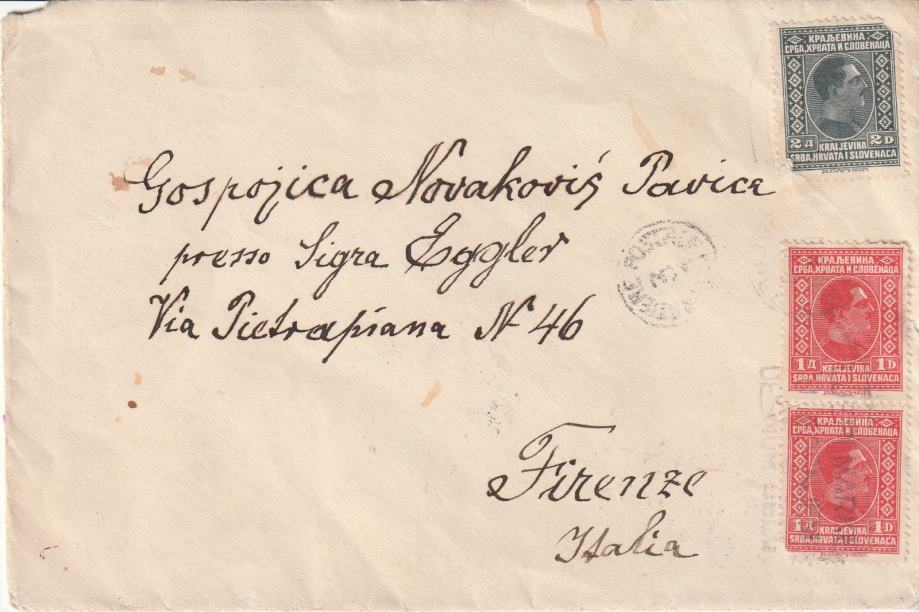 Gospojica Novaković Pavica
presso Sigra Eggler
Via Pietrapiana N 46
Firenze
Italia
КРАЉЕВИНА
СРБА, ХРВАТА И СЛОВЕНАЦА
2 Д 2 D
KRALJEVINA
SRBA, HRVATA I SLOVENACA
КРАЉЕВИНА
СРБА, ХРВАТА И СЛОВЕНАЦА
1 Д 1 D
KRALJEVINA
SRBA, HRVATA I SLOVENACA
КРАЉЕВИНА
СРБА, ХРВАТА И СЛОВЕНАЦА
1 Д 1 D
KRALJEVINA
SRBA, HRVATA I SLOVENACA